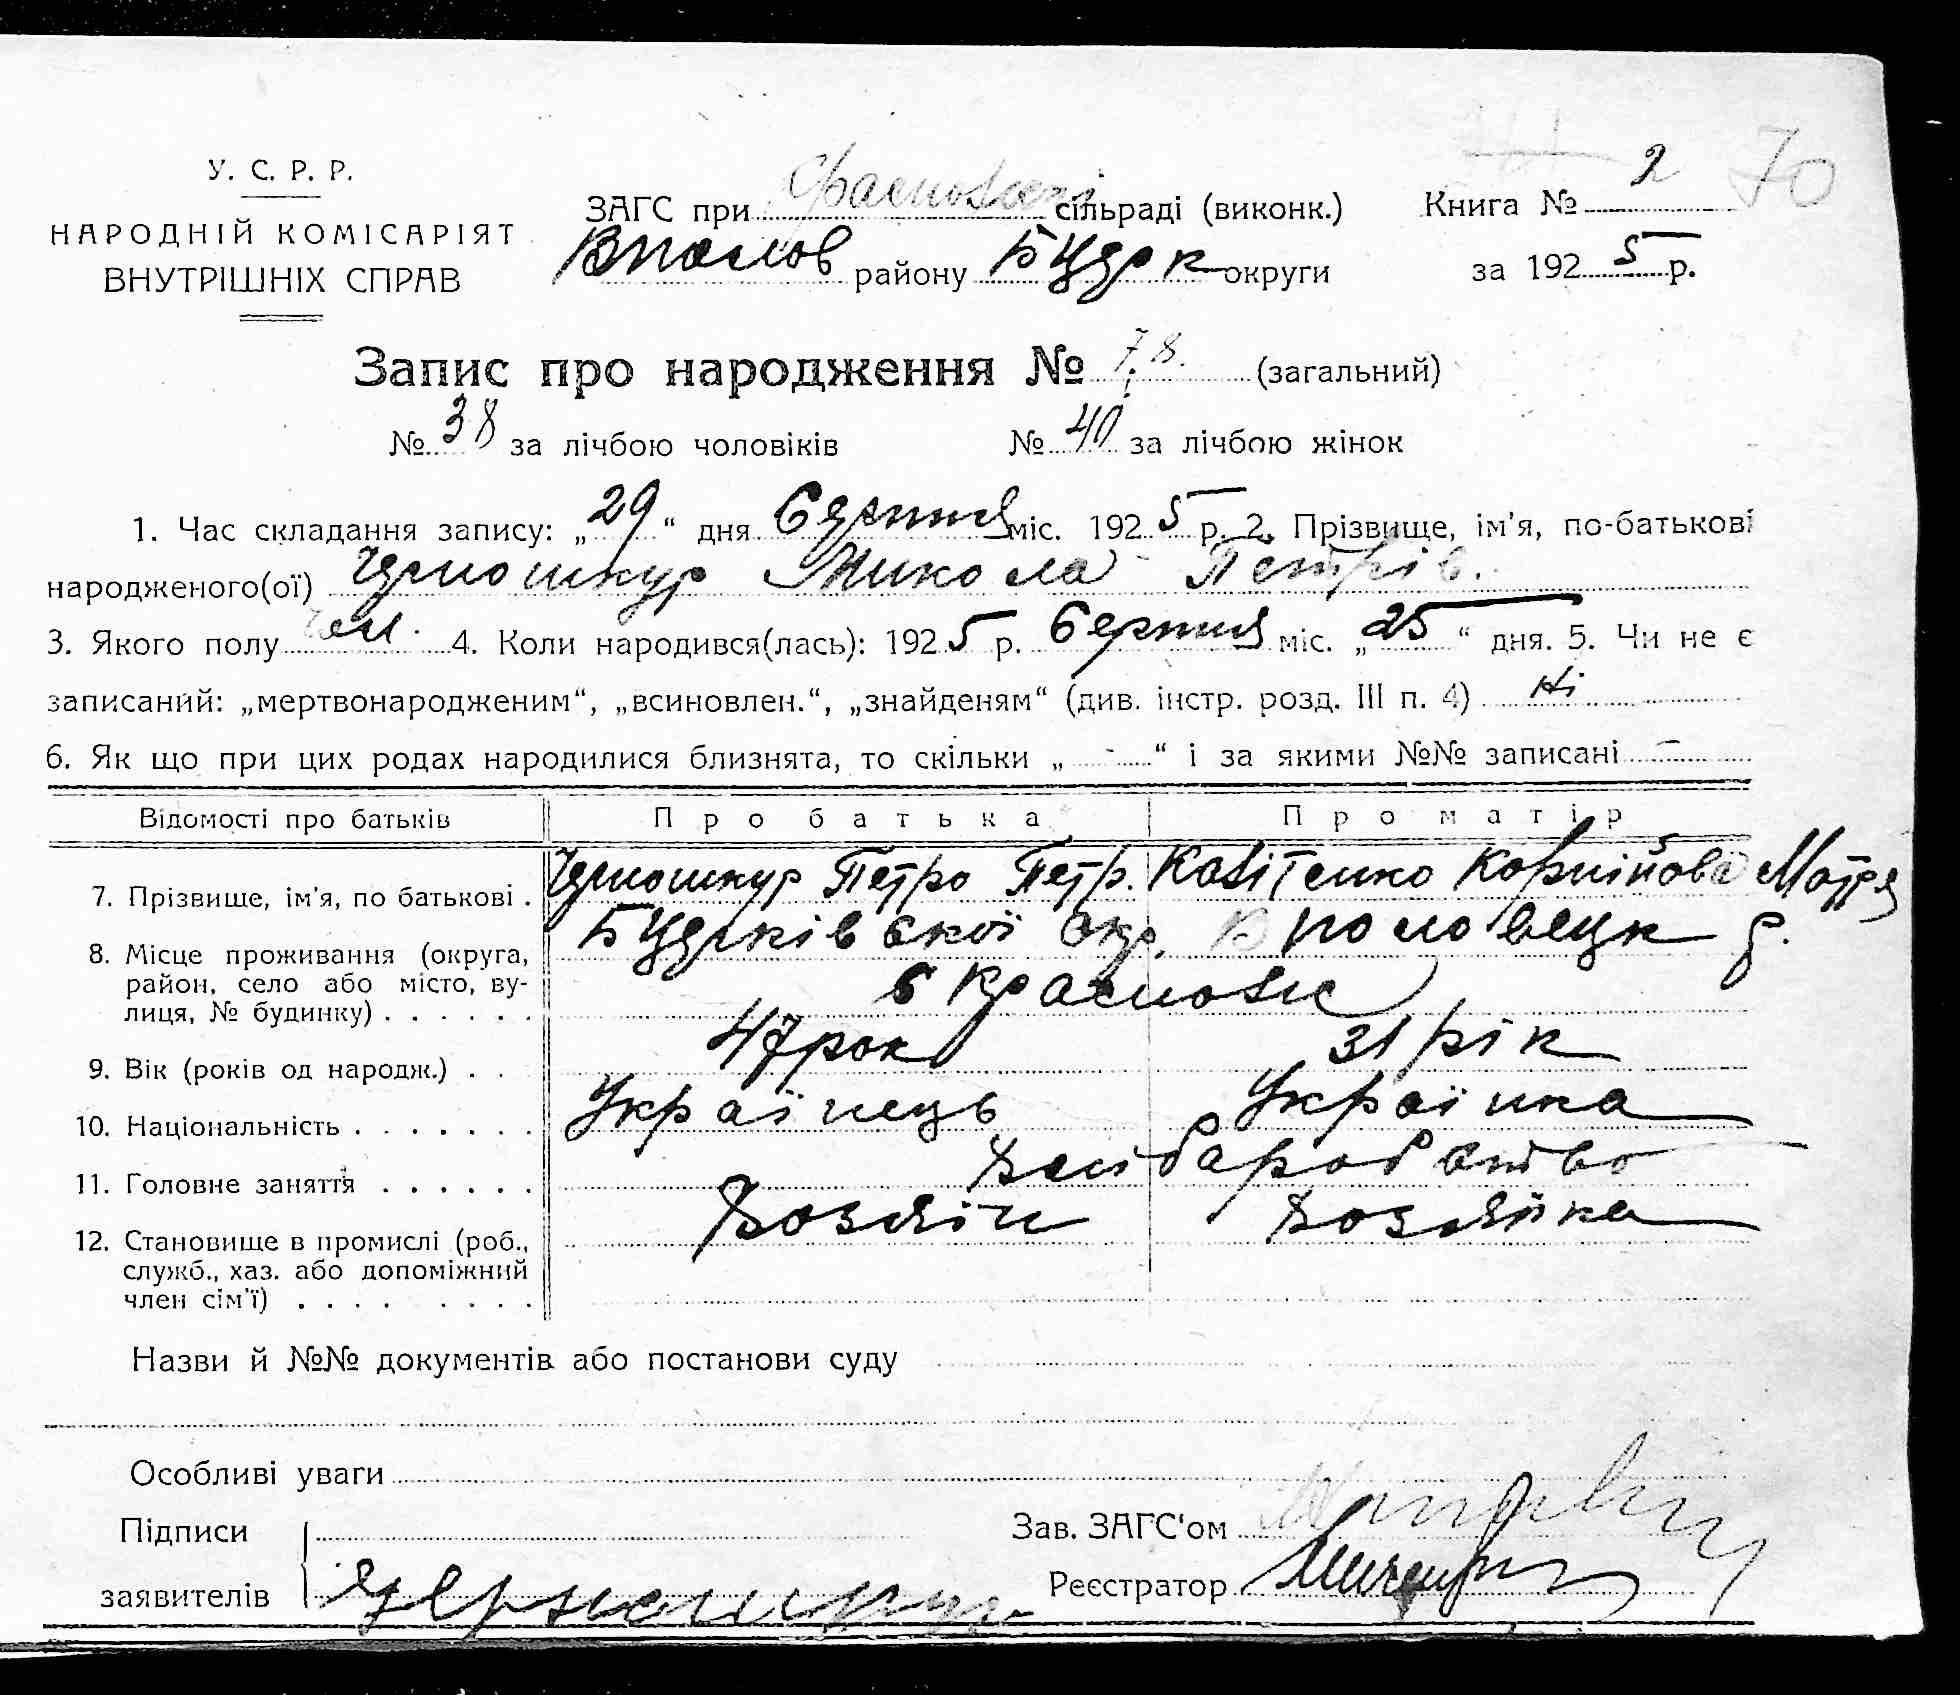 70
У. С. Р. Р.
НАРОДНІЙ КОМІСАРІЯТ
ВНУТРІШНІХ СПРАВ
ЗАГС при сільраді (виконк.)
району БЦерк округи
Книга № 2
за 1925 р.
Запис про народження № 78. (загальний)
№ 38 за лічбою чоловіків № 40 за лічбою жінок
1. Час складання запису: „29“ дня Серпня міс. 1925 р. 2. Прізвище, ім'я, по-батькові
народженого(ої) Чорношкур Микола Петрів.
3. Якого полу чол. 4. Коли народився(лась): 1925 р. Серпня міс. „25“ дня. 5. Чи не є
записаний: „мертвонародженим“, „всиновлен.“, „знайденям“ (див. інстр. розд. III п. 4) Ні
6. Як що при цих родах народилися близнята, то скільки „ - “ і за якими №№ записані –
Відомості про батьків Про батька Про матір
7. Прізвище, ім'я, по батькові . Чорношкур Петро Петр. Корнійова Мотря
8. Місце проживання (округа, район, село або місто, вулиця, № будинку) . . . . . . БЦерківської окр. Вполовецк р.
с
9. Вік (років од народж.) . . 47 рок 31 рік
10. Національність . . . . . . . Українець Українка
11. Головне заняття . . . . . . Хліборобство
12. Становище в промислі (роб., служб., хаз. або допоміжний член сім'ї) . . . . . . . . Хозяїн Хозяйка
Назви й №№ документів або постанови суду
Особливі уваги
Підписи
заявителів Чорношкур
Зав. ЗАГС'ом
Реєстратор